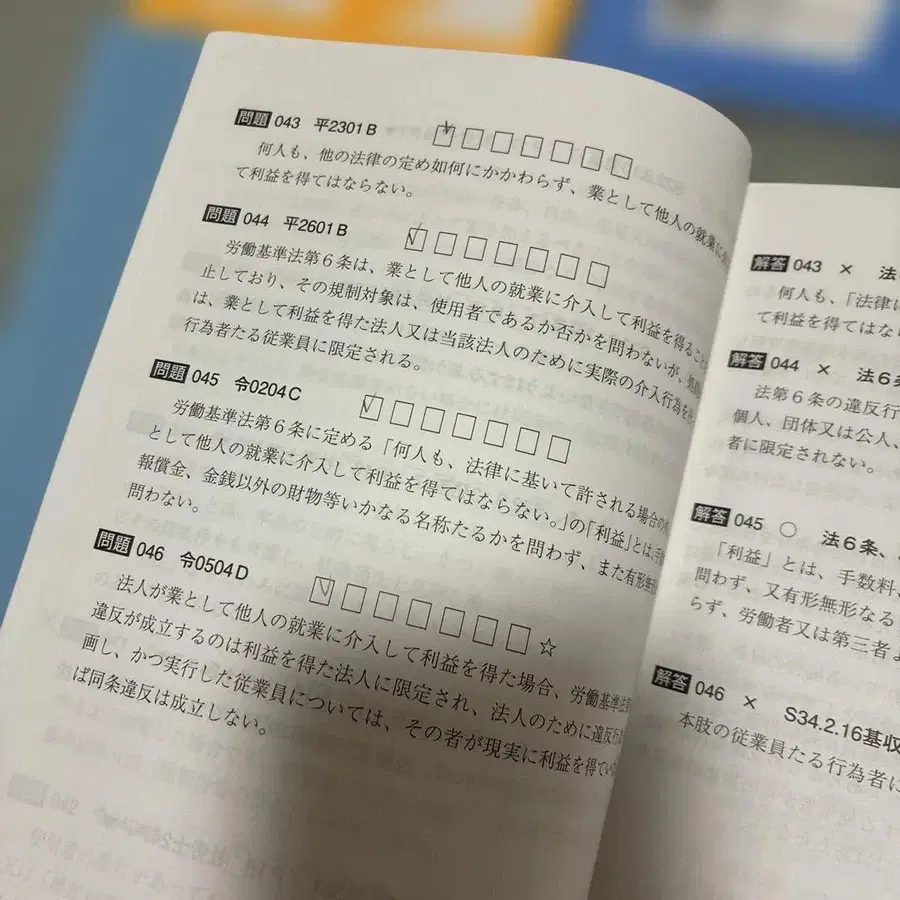 問題 043 平2301B
何人も、他の法律の定め如何にかかわらず、業として他人の就業に
て利益を得てはならない。
問題 044 平2601B
労働基準法第6条は、業として他人の就業に介入して利益を得ること
止しており、その規制対象は、使用者であるか否かを問わないが、処
は、業として利益を得た法人又は当該法人のために実際の介入行為を
行為者たる従業員に限定される。
問題 045 令0204C
労働基準法第6条に定める「何人も、法律に基いて許される場合の
として他人の就業に介入して利益を得てはならない。」の「利益」とは、手
報償金、金銭以外の財物等いかなる名称たるかを問わず、また有形無形
問わない。
問題 046 令0504D
☆
法人が業として他人の就業に介入して利益を得た場合、労働基準法
違反が成立するのは利益を得た法人に限定され、法人のために違反行
画し、かつ実行した従業員については、その者が現実に利益を得てい
ば同条違反は成立しない。
解答 043 × 法
何人も、「法律に
て利益を得てはな
解答 044 × 法6
法第6条の違反行
個人、団体又は公人、
者に限定されない。
解答 045 ○ 法6条、
「利益」とは、手数料、
問わず、又有形無形なる
らず、労働者又は第三者よ
解答 046 × S34.2.16基収
本肢の従業員たる行為者に